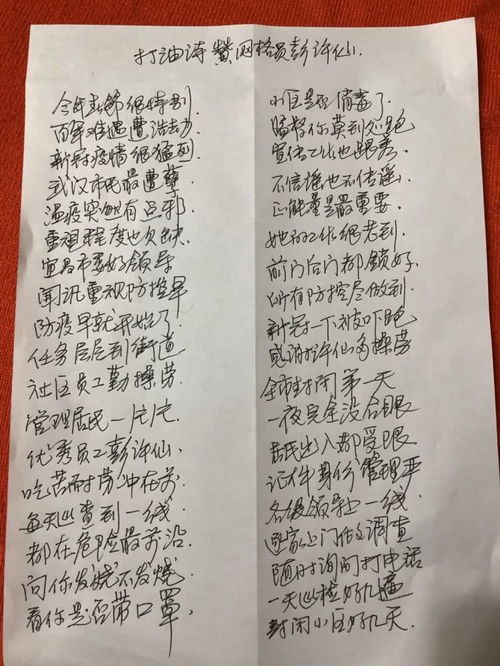 打油诗 赞网格员彭许仙
今年春节很特别
百年难遇遭浩劫
新冠疫情很猛烈
武汉市民最遭孽
温疫突然有点邪
重视程度也欠缺
宜昌市委好领导
闻讯重视防控早
防疫早就开始了
任务层层到街道
社区员工勤操劳
管理居民一片片
优秀员工彭许仙
吃苦耐劳冲在前
每天心贵到一线
都在危险最前沿
问你发烧不发烧
看你是否带口罩
小区是否消毒了
监督你莫到处跑
宣传工作也跟秀
不信谣也不传谣
正能量是最重要
她的工作很老到
前门后门都锁好
所有防控尽做到
新冠一下被吓跑
感谢许仙多操劳
全市封闭第一天
一夜完全没合眼
居民出入都受限
证件身份管理严
各级领导上一线
逐家上门作调查
随时询问打电话
一天心检好几遍
封闭小区好几天